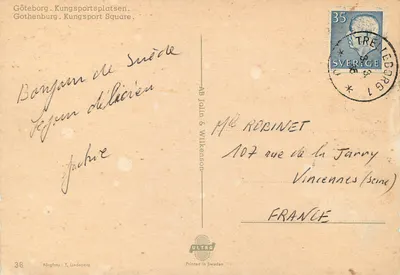 Göteborg. Kungsportsplatsen.
Gothenburg. Kungsport Square.
Bonjour de Suède
Séjour délicieux
AB Julin & Wilkenson
35
SVERIGE
TRELLEBORG 1
Mlle ROBINET
107 rue de la Jarry
Vincennes (Seine)
FRANCE
38
ULTRA
Printed in Sweden